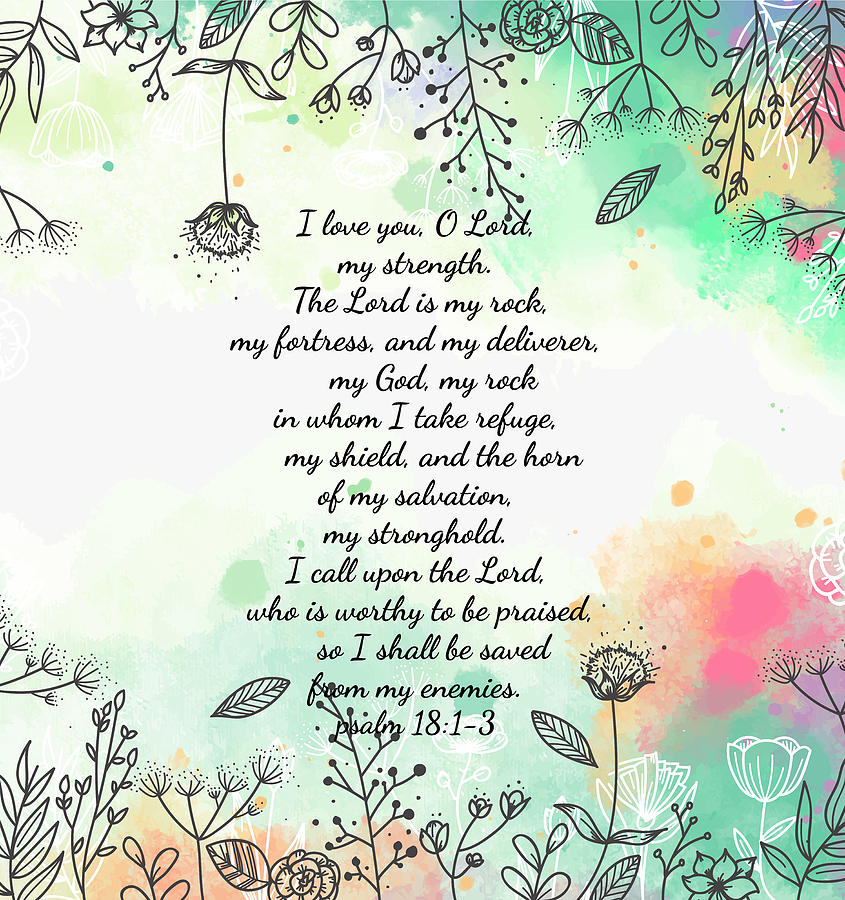 I love you, O Lord,
my strength.
The Lord is my rock,
my fortress, and my deliverer,
my God, my rock
in whom I take refuge,
my shield, and the horn
of my salvation,
my stronghold.
I call upon the Lord,
who is worthy to be praised,
so I shall be saved
from my enemies.
psalm 18:1-3